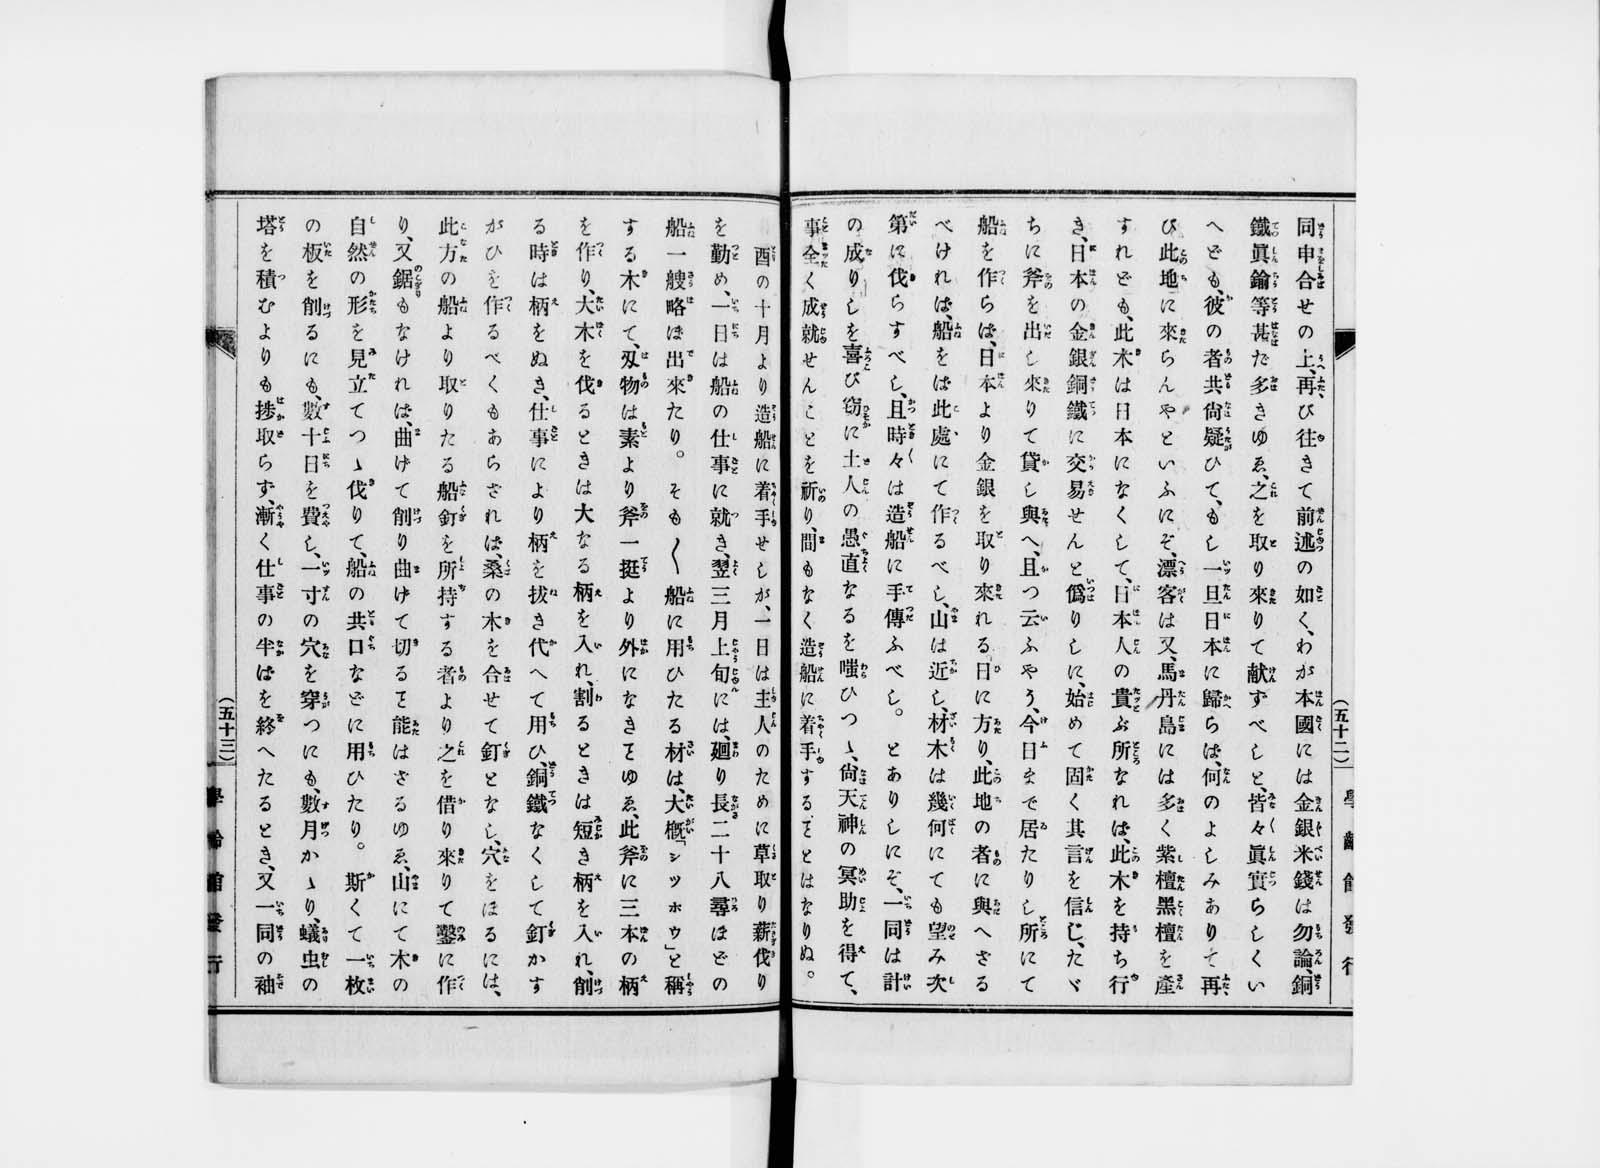 同申合せの上、再び往きて前述の如く、わが本國には金銀米錢は勿論、銅
鐵眞鍮等甚だ多きゆゑ、之を取り來りて献ずべしと、皆々眞實らしくい
へども、彼の者共尙疑ひて、もし一旦日本に歸らば、何のよしみありて再
び此地に來らんやといふにぞ、漂客は又、馬丹島には多く紫檀黑檀を產
すれども、此木は日本になくして、日本人の貴ぶ所なれば、此木を持ち行
き、日本の金銀銅鐵に交易せんと僞りしに、始めて固く其言を信じ、たゞ
ちに斧を出し來りて貸し與へ、且つ云ふやう、今日まで居たりし所にて
船を作らば、日本より金銀を取り來れる日に方り、此地の者に與へざる
べければ、船をば此處にて作るべし、山は近し、材木は幾何にても望み次
第に伐らすべし、且時々は造船に手傳ふべし。とありしにぞ、一同は計
の成りしを喜び窃に土人の愚直なるを嗤ひつゝ、尙天神の冥助を得て、
事全く成就せんことを祈り、間もなく造船に着手するヿとはなりぬ。
(五十二)
學齡館發行
酉の十月より造船に着手せしが、一日は主人のために草取り薪伐り
を勤め、一日は船の仕事に就き、翌三月上旬には、廻り長二十八尋ほどの
船一艘略ぼ出來たり。そも〳〵船に用ひたる材は、大槪「シツホウ」と稱
する木にて、刄物は素より斧一挺より外になきヿゆゑ、此斧に三本の柄
を作り、大木を伐るときは大なる柄を入れ、割るときは短き柄を入れ、削
る時は柄をぬき、仕事により柄を拔き代へて用ひ、銅鐵なくして釘かす
がひを作るべくもあらざれば、桑の木を合せて釘となし、穴をほるには、
此方の船より取りたる船釘を所持する者より之を借り來りて鑿に作
り、又鋸もなければ、曲げて削り曲げて切るヿ能はざるゆゑ、山にて木の
自然の形を見立てつゝ伐りて、船の共口などに用ひたり。斯くて一枚
の板を削るにも、數十日を費し、一寸の穴を穿つにも、數月かゝり、蟻虫の
塔を積むよりも捗取らず、漸く仕事の半ばを終へたるとき、又一同の袖
(五十三)
學齡館發行